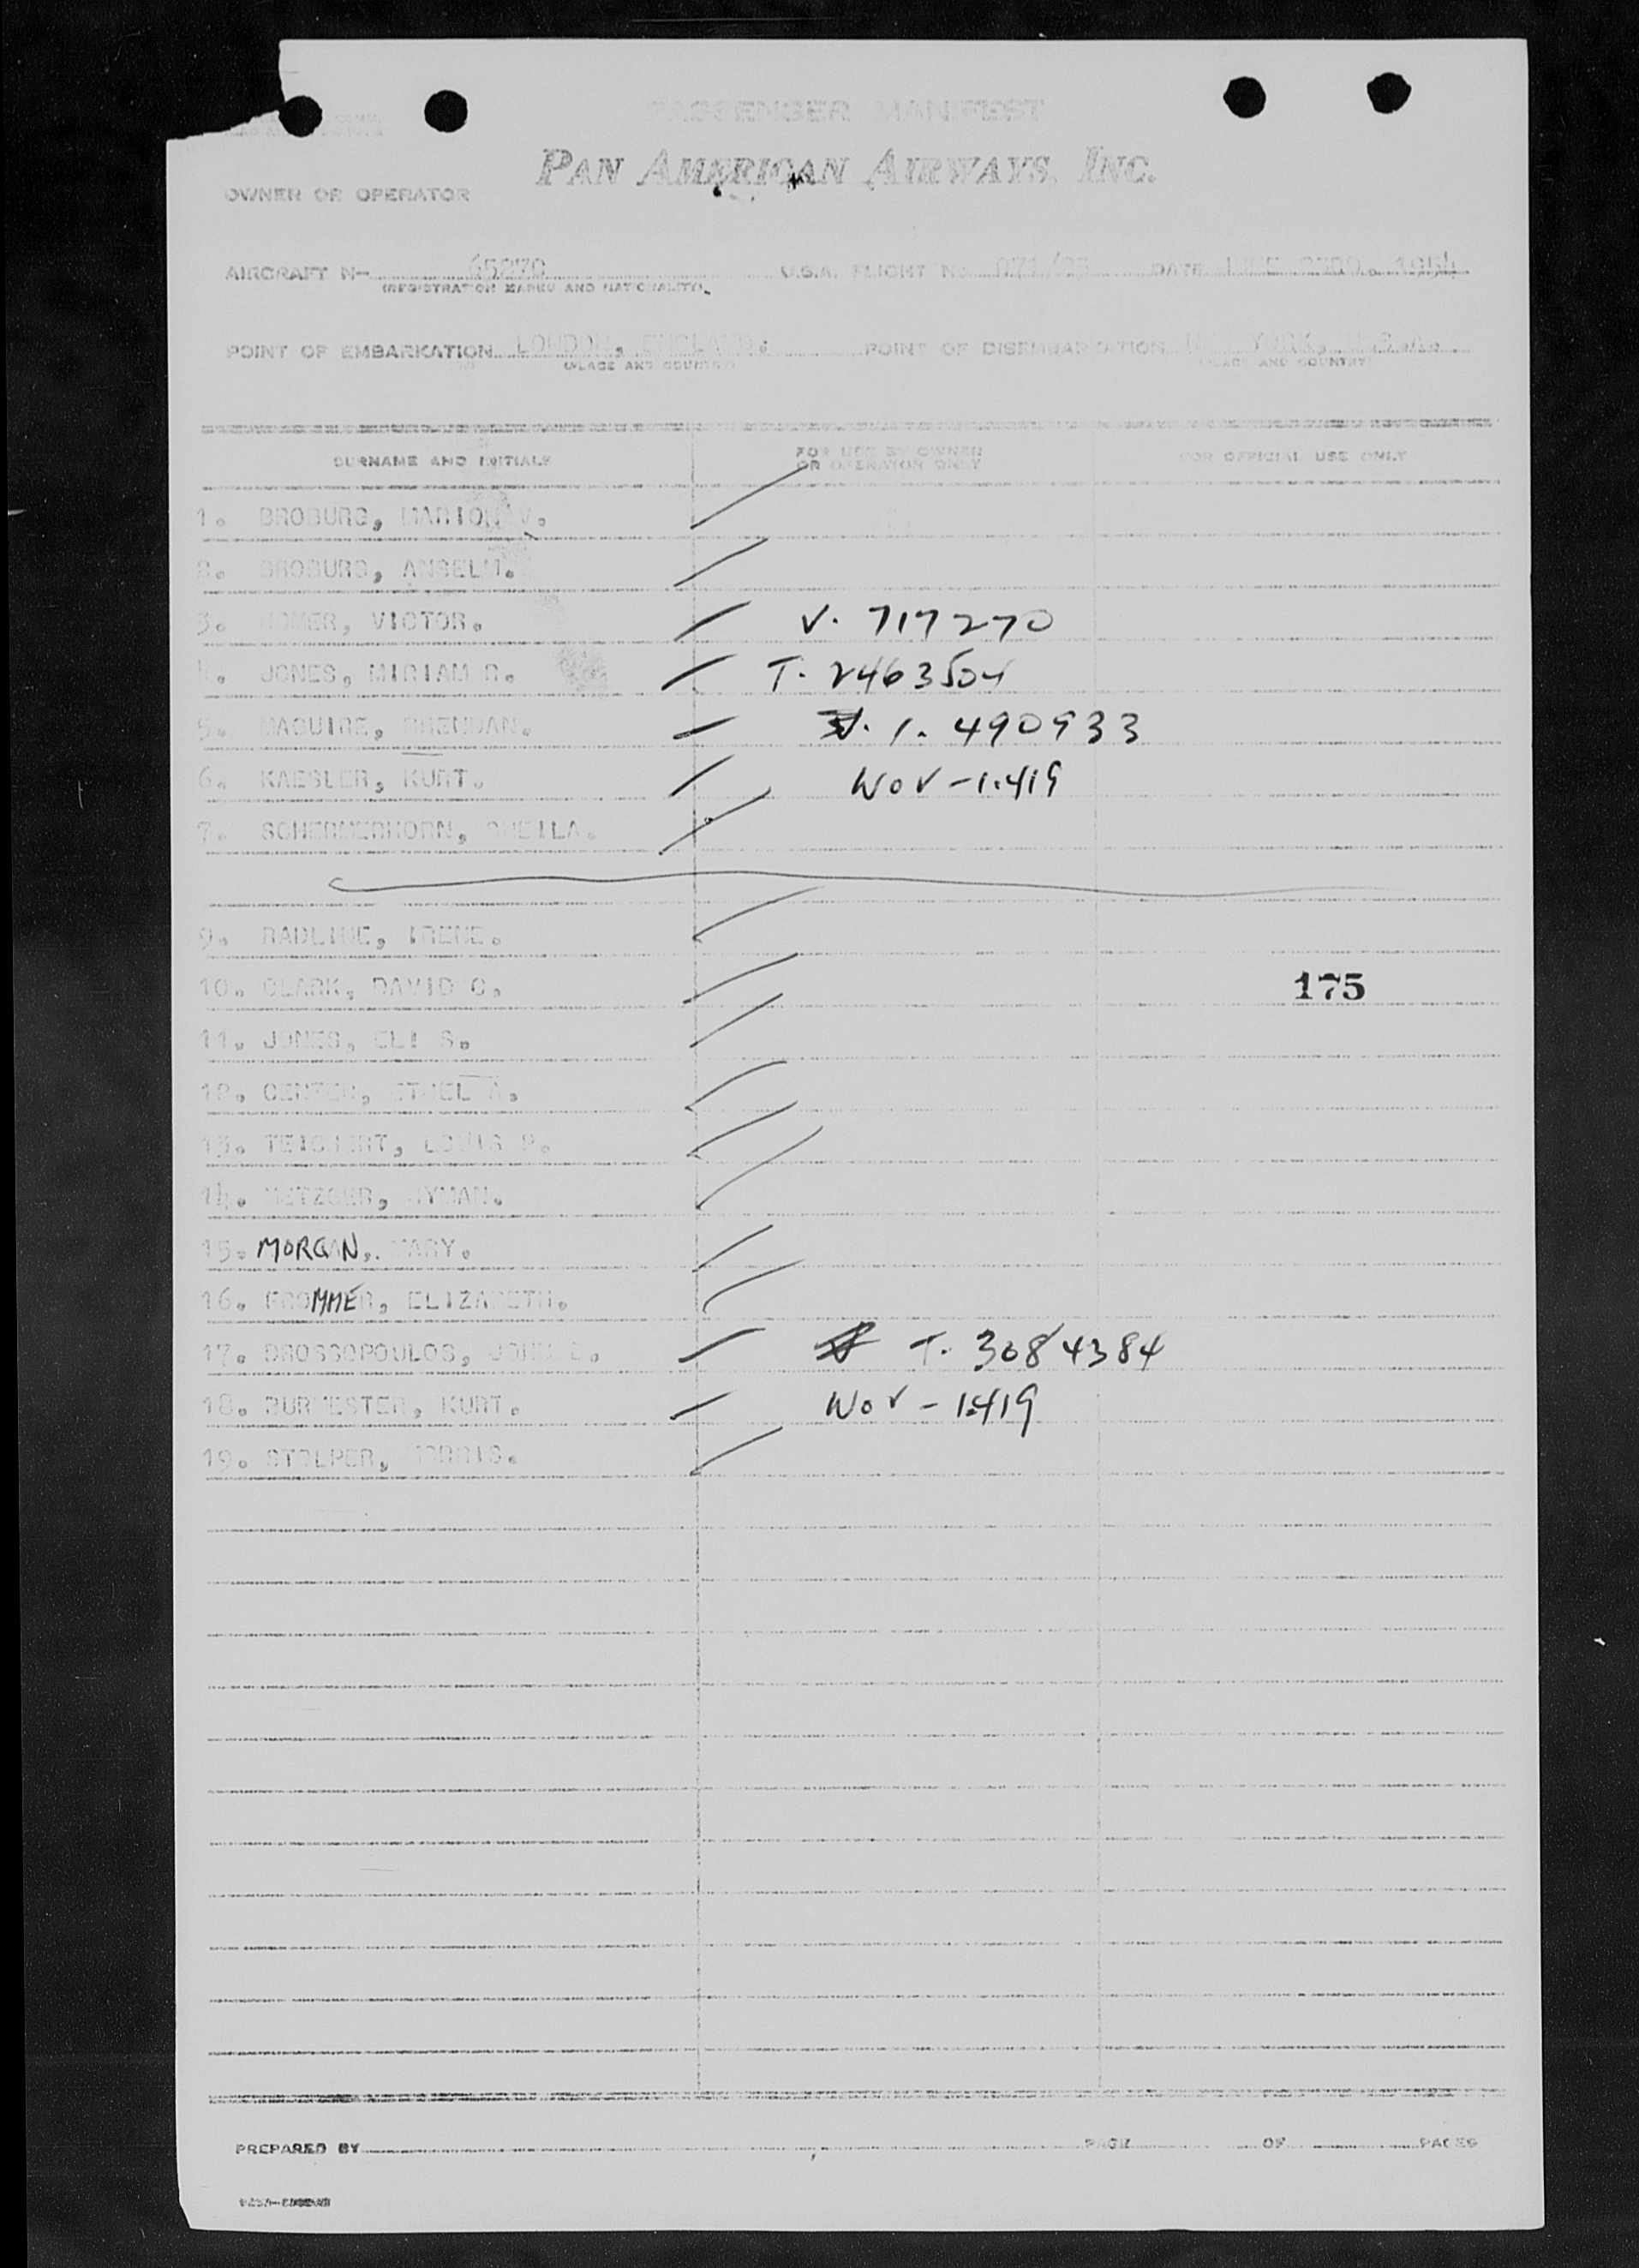 PASSENGER MANIFEST
PAN AMERICAN AIRWAYS, INC.
OWNER OR OPERATOR
AIRCRAFT N- 65270 U.S.A. FLIGHT No. DATE 1954
(REGISTRATION MARKS AND NATIONALITY)
POINT OF EMBARKATION LONDON, ENGLAND. POINT OF DISEMBARKATION YORK,
(PLACE AND COUNTRY) (PLACE AND COUNTRY)
SURNAME AND INITIALS FOR USE BY OWNER OR OPERATOR ONLY FOR OFFICIAL USE ONLY
1. BROBURG, MARION V.
2. BROBURG, ANSELM.
3. VICTOR. V. 717270
4. JONES, MIRIAM R. T. 2463504
5. MAGUIRE, BRENDAN. 1. 490933
6. KAESLER, KURT. Nov-1.419
7. SCHERMERHORN, SHEILA.
9. RADLINE, IRENE.
10. CLARK, DAVID C. 175
11. JONES, ELI S.
12. ETHEL
13. TEICHERT, LOUIS
14. METZGER, HYMAN.
15. MORGAN, MARY.
16. FROMMER, ELIZABETH.
17. DROSSOPOULOS, JOHN T. 3084384
18. BURMESTER, KURT. Nov-1.419
19. STOLPER, MORRIS.
PREPARED BY PAGE OF PAGES